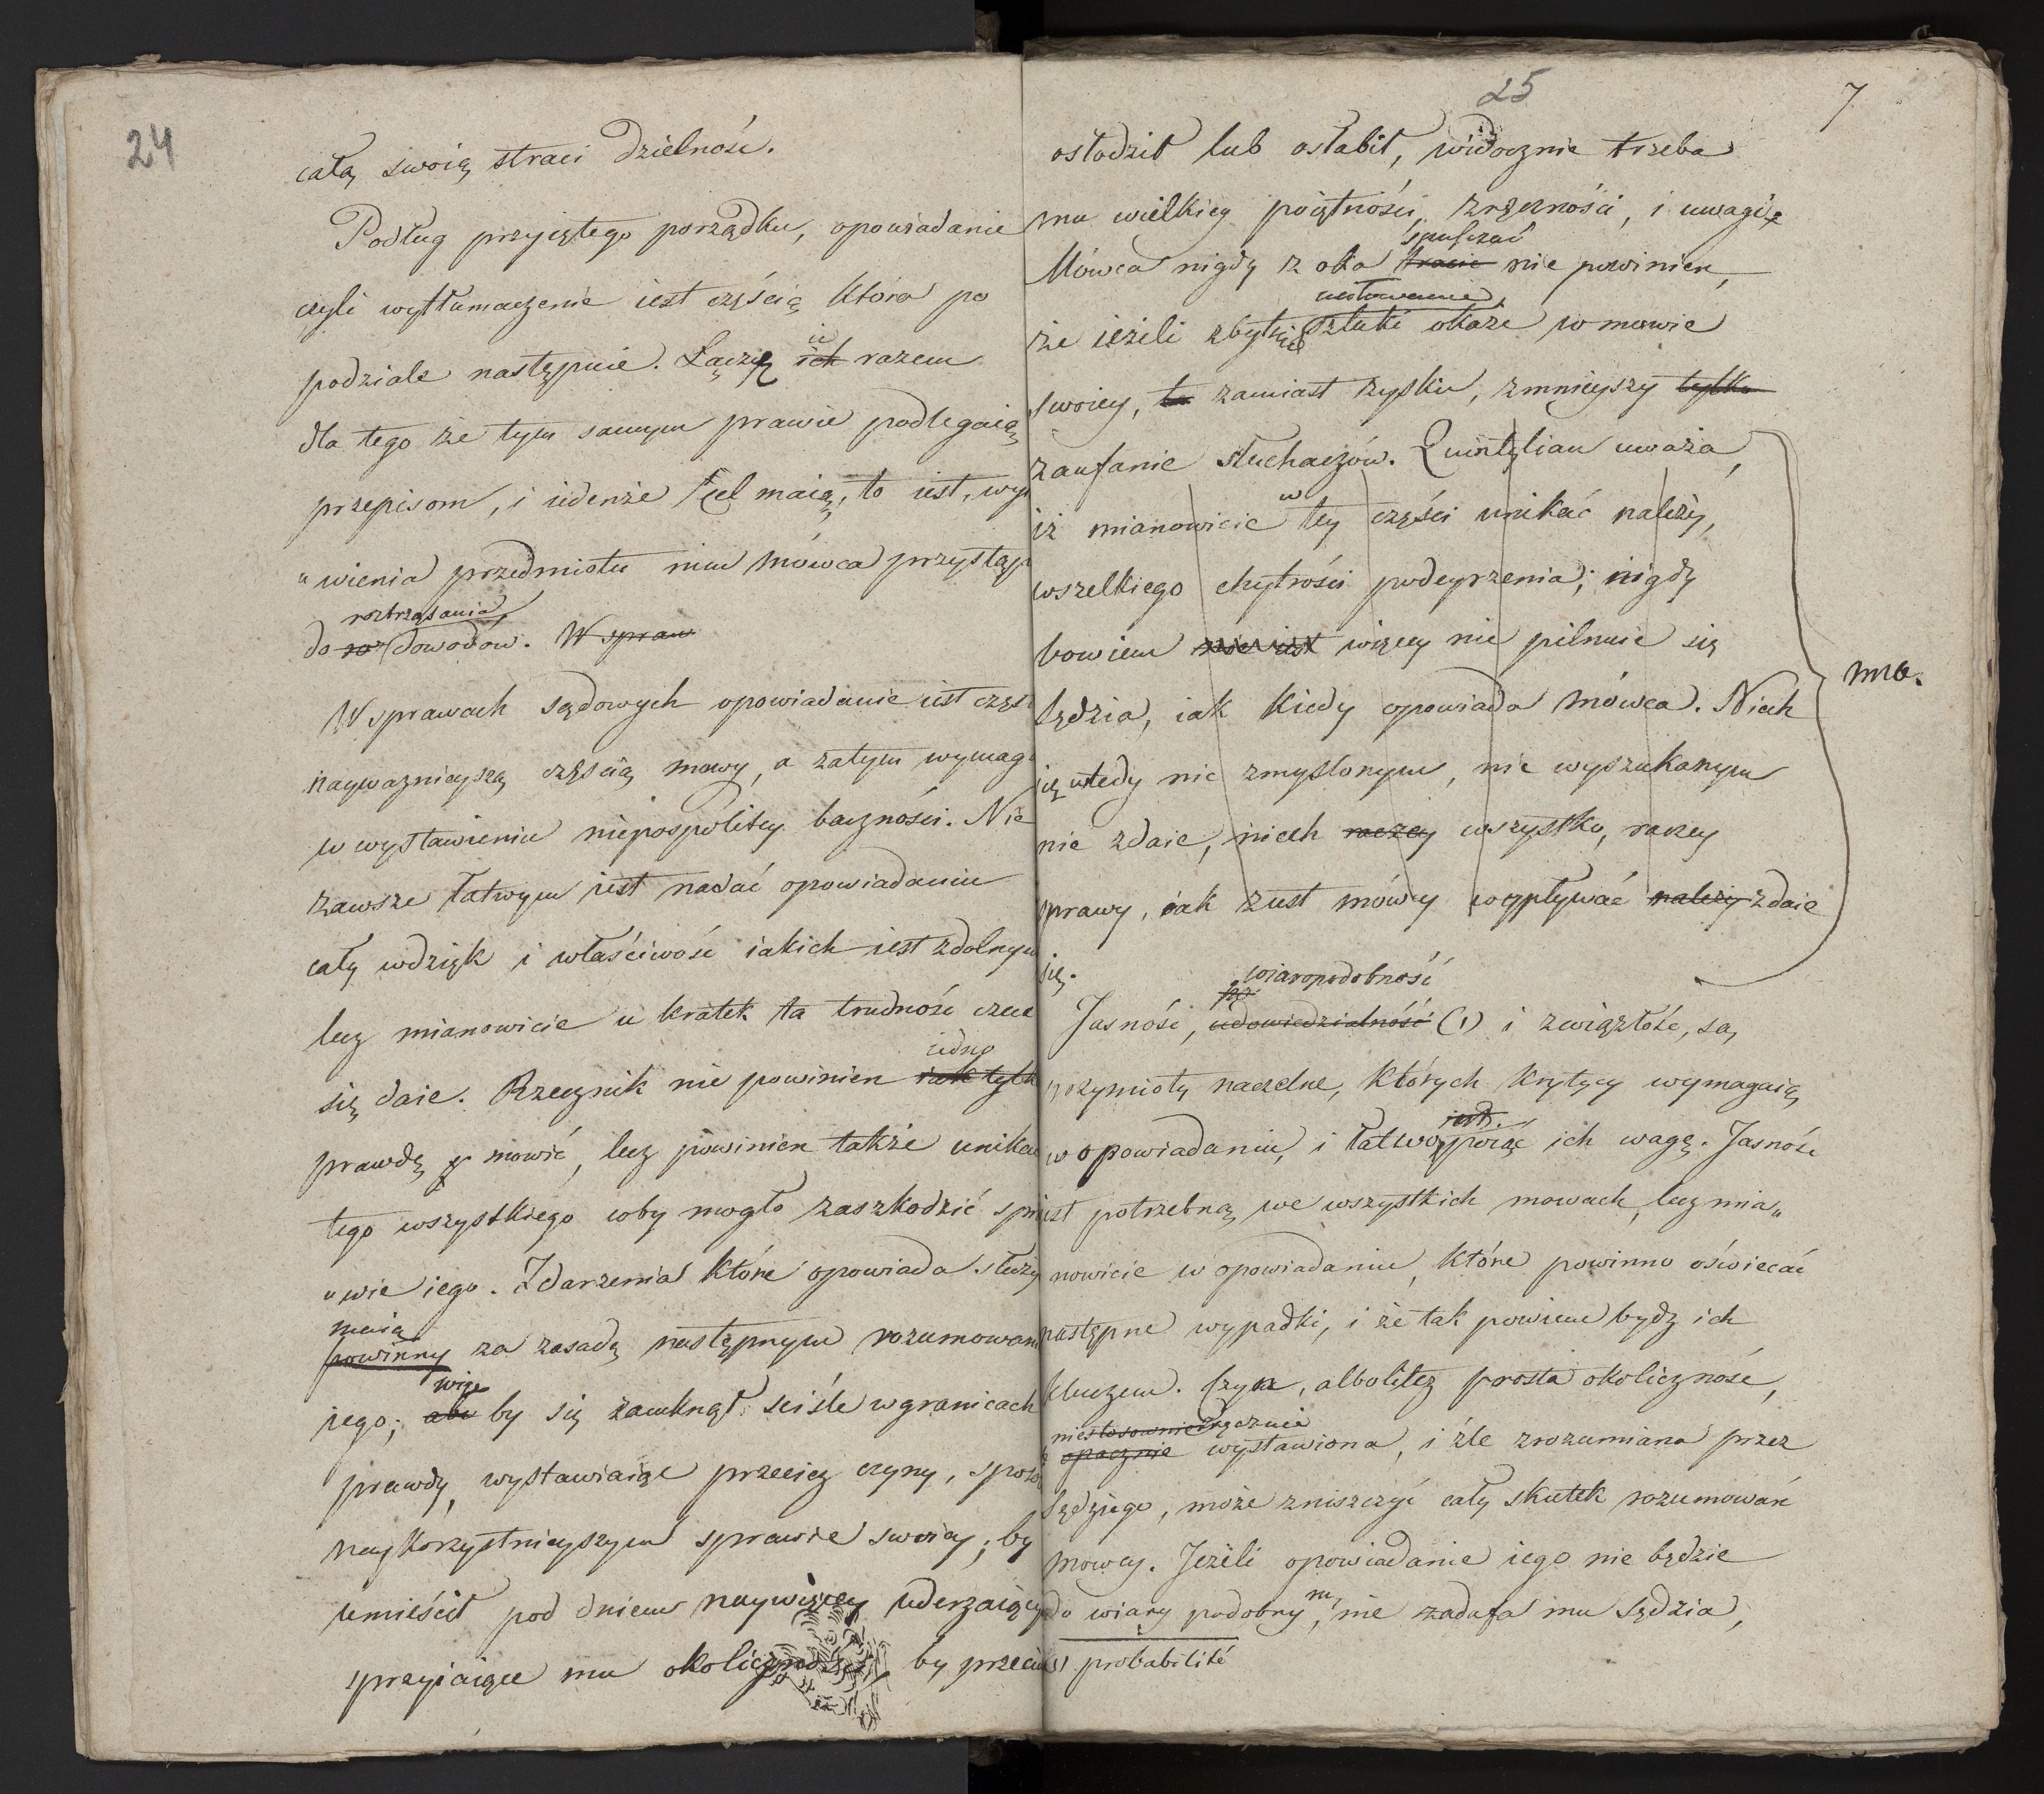 24
całą swoią straci dzielność.
Podług przyiętego porządku, opowiadanie
czyli wytłumaczenie iest częścią która po
podziale następuie. Łączę ich ie razem
dla tego że tym samym prawie podlegaią
przepisom, i iedenże cel maią, to iest, wyi
„wienia przedmiotu nim mówca przystąpi
roztrząsania
do roz dowodów. W spraw
W sprawach sądowych opowiadanie iest częst
nayważnieyszą częścią mowy, a zatym wymaga
w wystawieniu niepospolitey baczności. Nie
zawsze łatwym iest nadać opowiadaniu
cały wdzięk i właściwość iakich iest zdolnym
lecz mianowicie u kratek ta trudność czuć
iedno
się daie. Rzecznik nie powinien iak tylk
prawdę mowić, lecz powinien także unikać
tego wszystkiego coby mogło zaszkodzić spra
„wie iego. Zdarzenia które opowiada służy
maią
powinny za zasadę następnym rozumowani
więc
iego; aby by się zamknął ściśle w granicach
prawdy, wystawiaiąc przecież czyny, sposo
naykorzystnieyszym sprawie swoiey; by
umieścił pod dniem naywięcey uderzaiący
sprzyiaiące mu okoliczności, by przeciw
25
7
osłodził lub osłabił, widocznie trzeba
mu wielkiey poiętności, zręczności, i uwagi
spuszczać
Mówca nigdy z oka tracić nie powinien,
usiłowanie
że ieżeli zbytnie sztuki okaże w mowie
swoiey, to zamiast zysku, zmnieyszy tylko
zaufanie słuchaczów. Quintylian uważa,
iż mianowicie w tey części unikać należy,
wszelkiego chytrości podeyrzenia; nigdy
bowiem nie iest więcey nie pilnuie się
sędzia, iak kiedy opowiada mówca. Niech
mo.
się wtedy nic zmyślonym, nic wyszukanym
nie zdaie, niech raczey wszystko, raczey
sprawy, iak z ust mówcy wypływać należy zdaie
się.
wiaropodobność
Jasność, udowiedzialność (1) i zwięzłość, są
przymioty naczelne, których krytycy wymagaią
iest.
w opowiadaniu, i łatwo poiąć ich wagę. Jasność
iest potrzebną we wszystkich mowach, lecz mia„
nowicie w opowiadaniu, które powinno oświecać
następne wypadki, i że tak powiem bydź ich
kluczem. Czyn, albo też prosta okoliczność,
niestosownie zręcznie
opacznie wystawiona, i źle zrozumiana przez
sędziego, może zniszczyć cały skutek rozumowań
mowcy. Jeżeli opowiadanie iego nie będzie
do wiary podobnym, nie zadufa mu sędzia,
(1) probabilité